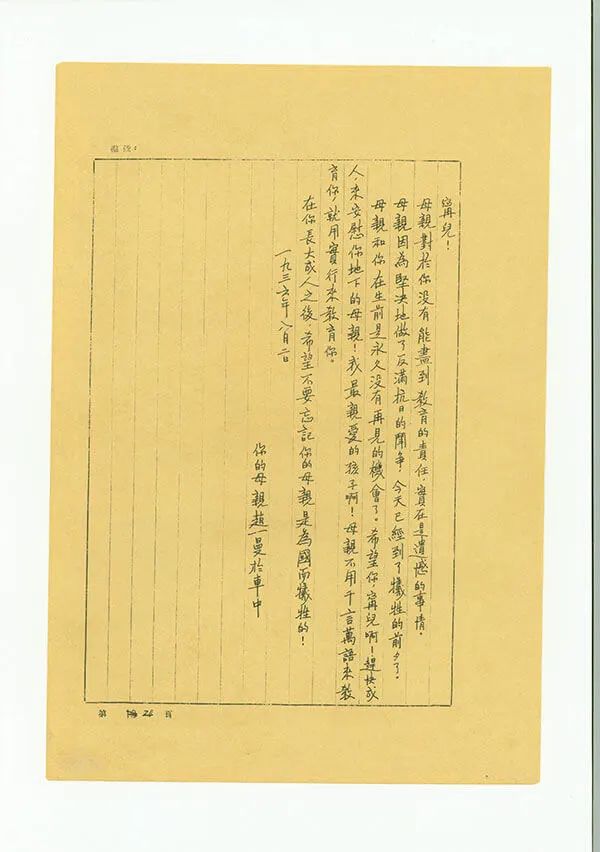 甯兒！
母親對於你沒有能盡到教育的責任，實在是遺憾的事情。
母親因為堅決地做了反滿抗日的鬥爭，今天已經到了犧牲的前夕了。
母親和你在生前是永久沒有再見的機會了。希望你，甯兒啊！趕快成
人，來安慰你地下的母親！我最親愛的孩子啊！母親不用千言萬語來教
育你，就用實行來教育你。
在你長大成人之後，希望不要忘記你的母親是為國而犧牲的！
一九三六年八月二日
你的母親趙一曼於車中